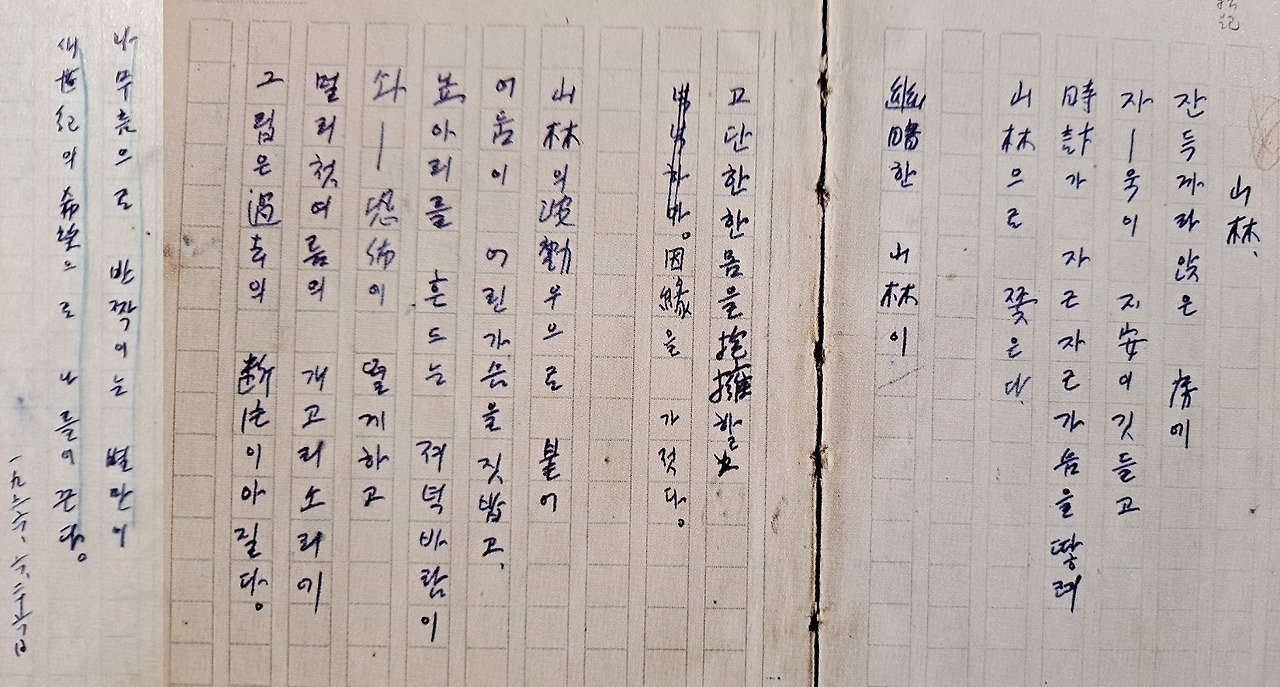 山林.
잔득까라앉은 房에
자—욱이 不安이깃들고
時計가 자근자근가슴을땋려
山林으로 쫓은다.
幽暗한 山林이
고단한한몸을抱擁할
因緣을 가젓다。
山林의波動우으로 붙어
어둠이 어린가슴을짓밟고.
흔드는 져녁바람이
솨—恐怖에 떨게하고
멀리첫여름의 개고리소리에
그럽은過去의 斷片이아질다。
나무틈으로 반짝이는 별만이
새世紀의希望으로 나를이끈다。
一九三六、六、二六日